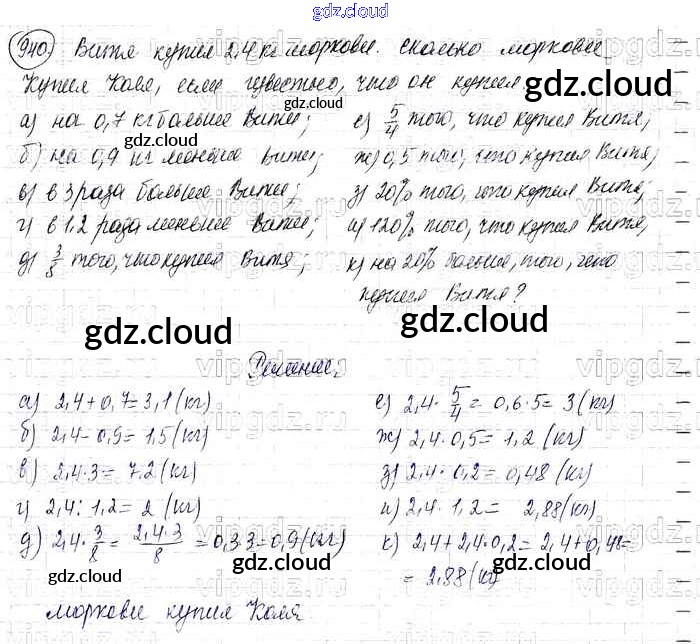 gdz.cloud
940. Витя купил 2,4 кг моркови. Сколько моркови
купил Коля, если известно, что он купил
gdz.cloud
а) на 0,7 кг больше Вити;
gdz.cloud
б) на 0,9 кг меньше Вити;
в) в 3 раза больше Вити;
г) в 1.2 раза меньше Вити;
д) 3/8 того, что купил Витя;
е) 5/4 того, что купил Витя;
ж) 0,5 того, что купил Витя;
з) 20% того, что купил Витя;
и) 120% того, что купил Витя;
к) на 20% больше, того, что
купил Витя?
gdz.cloud
gdz.cloud
gdz.cloud
gdz.cloud
Решение.
а) 2,4 + 0,7 = 3,1 (кг)
б) 2,4 - 0,9 = 1,5 (кг)
в) 2,4 · 3 = 7.2 (кг)
г) 2,4 : 1,2 = 2 (кг)
д) 2,4 · 3/8 = 2,4 · 3/8 = 0,3·3 = 0,9 (кг)
е) 2,4 · 5/4 = 0,6 · 5 = 3 (кг)
ж) 2,4 · 0,5 = 1,2 (кг)
з) 2,4 · 0,2 = 0,48 (кг)
и) 2,4 · 1,2 = 2,88 (кг)
к) 2,4 + 2,4 · 0,2 = 2,4 + 0,48 =
= 2,88 (кг)
gdz.cloud
gdz.cloud
gdz.cloud
gdz.cloud
моркови купил Коля
gdz.cloud